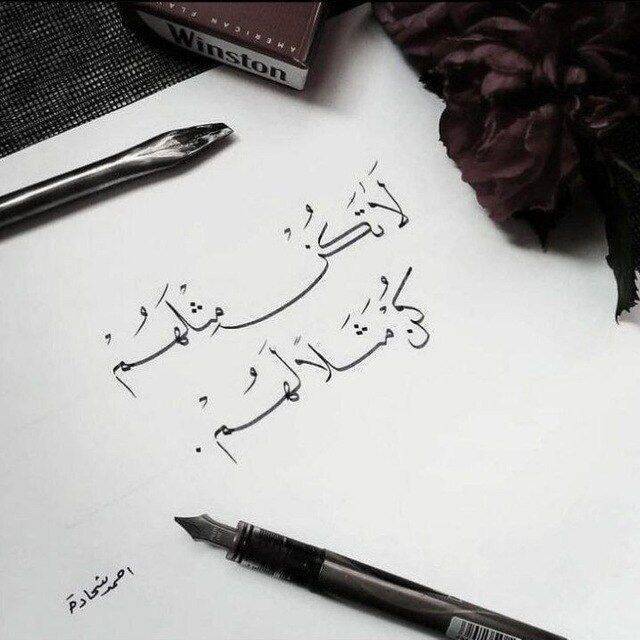 Winston
AMERICAN FLA
لَا تَكُنْ مِثْلَهُمْ
كُنْ مَثَلاً لَهُمْ.
احمد شحادة